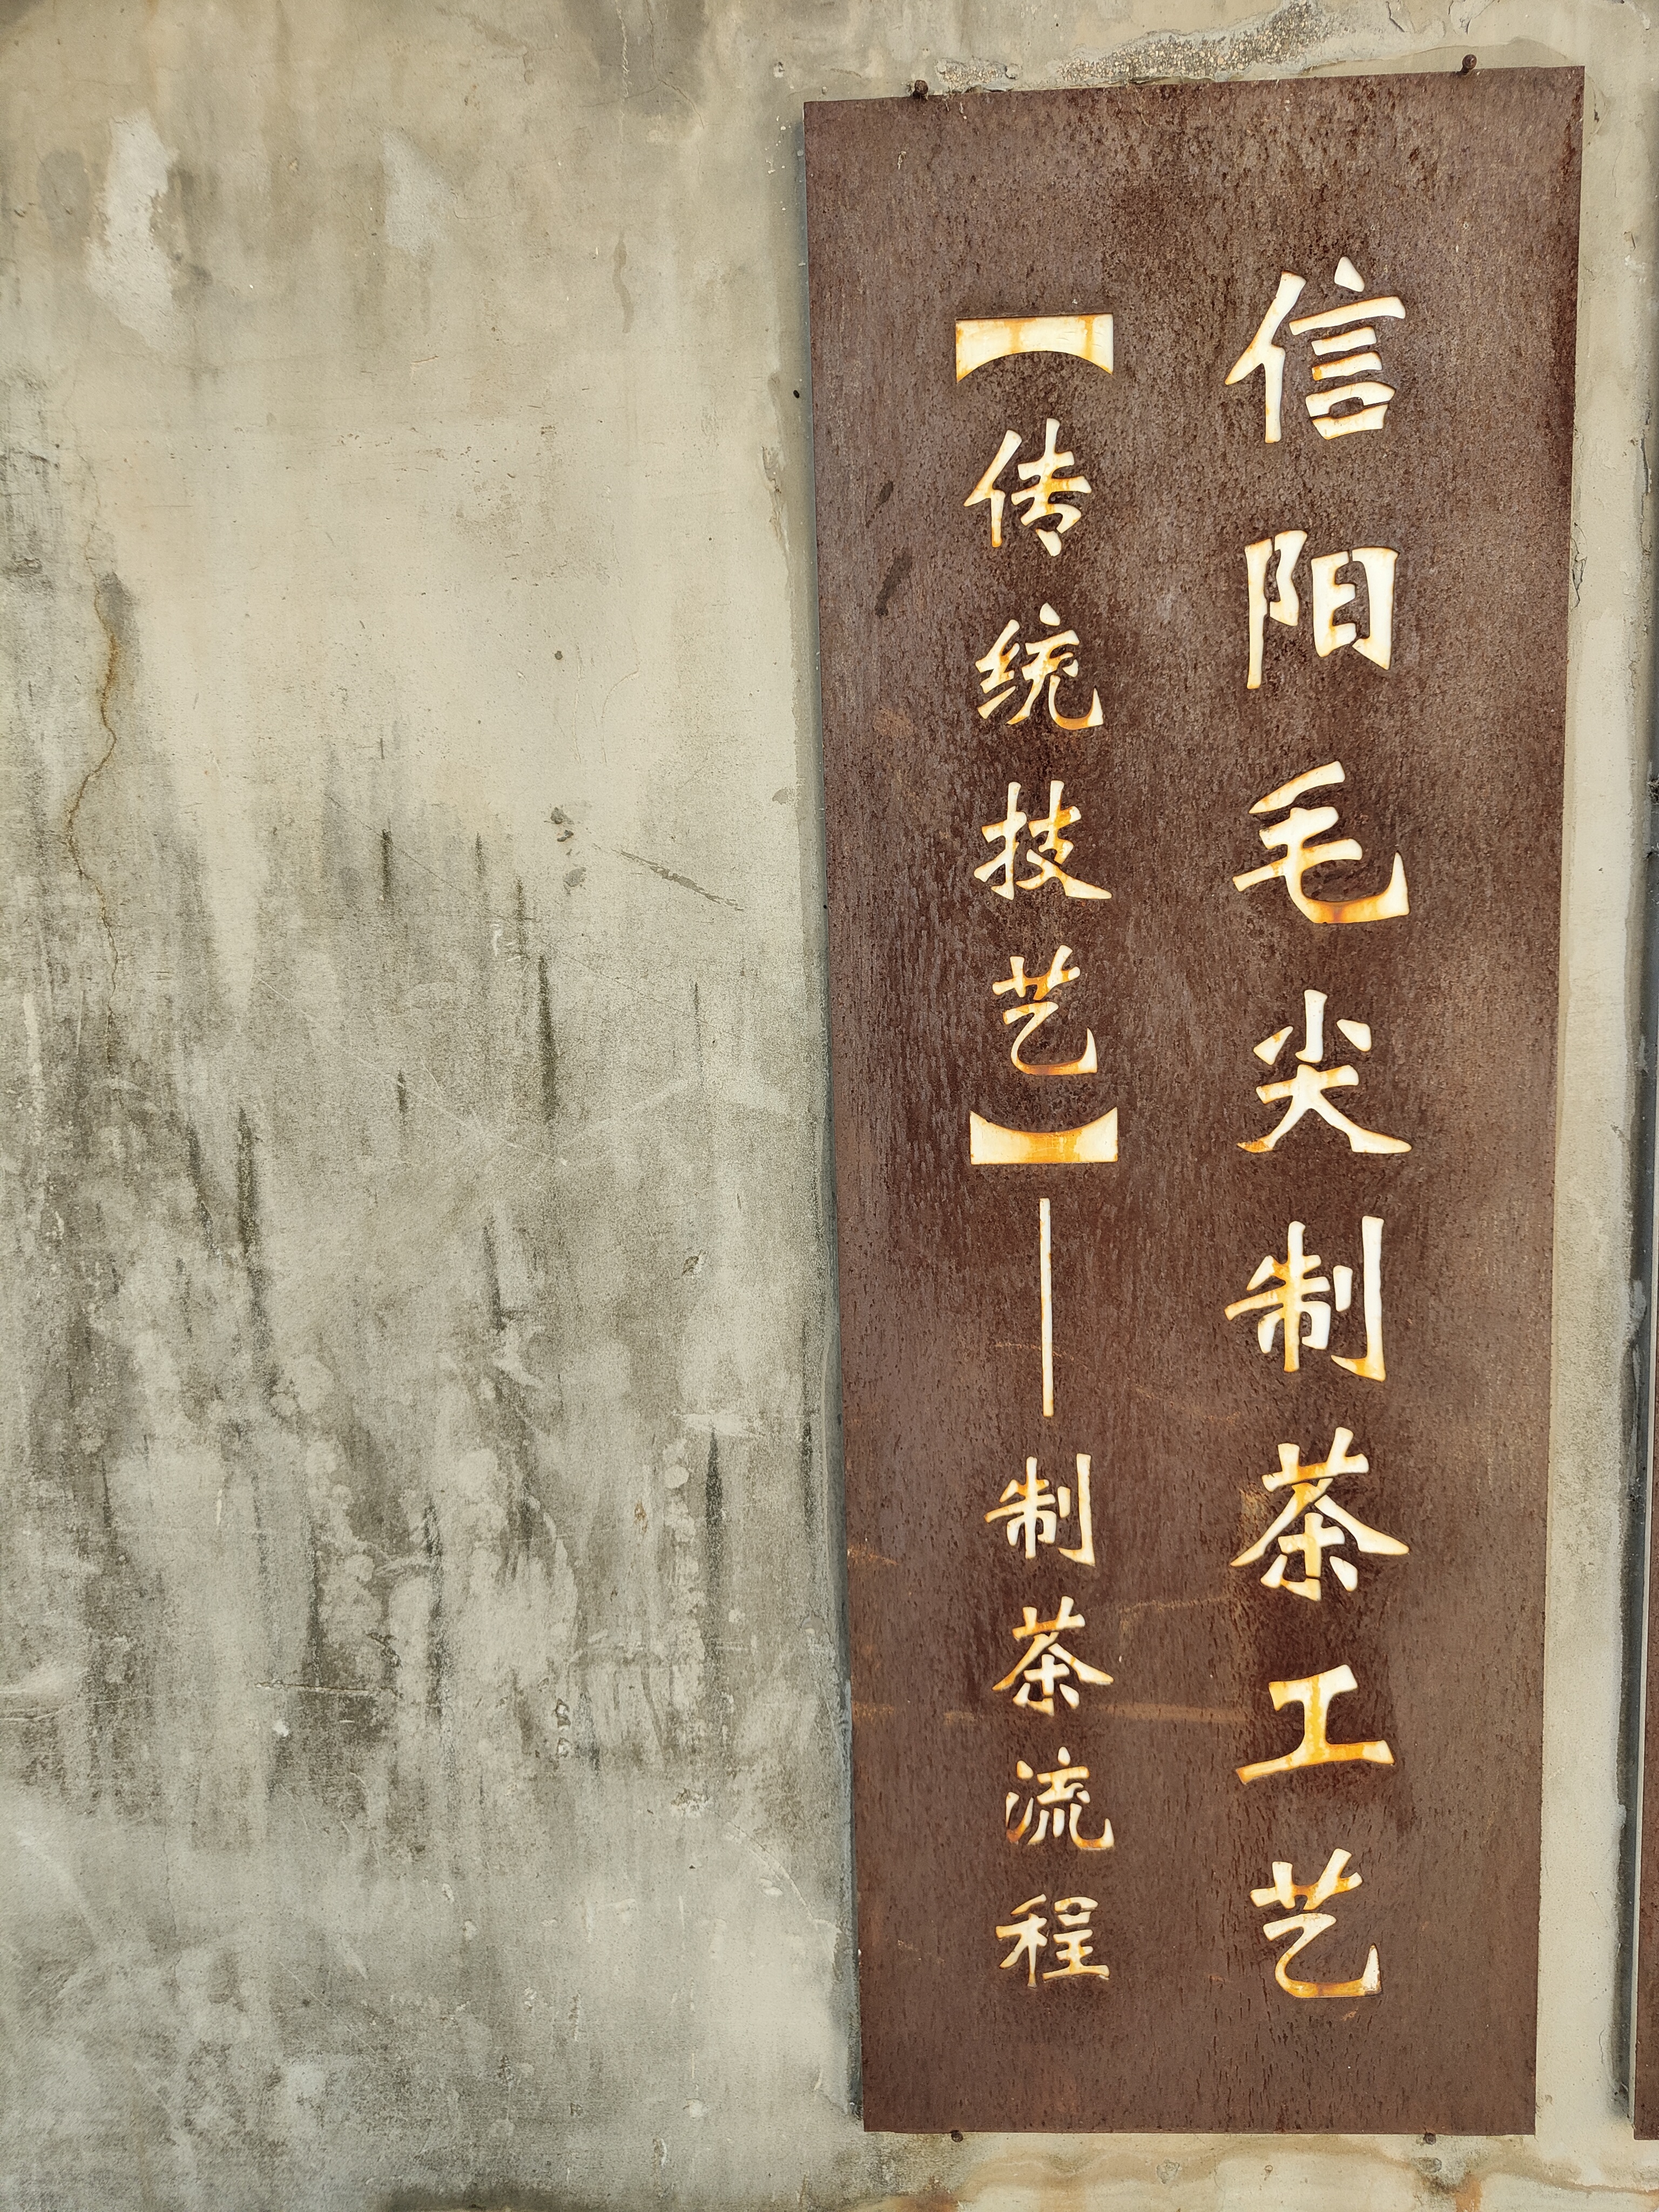 信阳毛尖制茶工艺
【传统技艺】——制茶流程